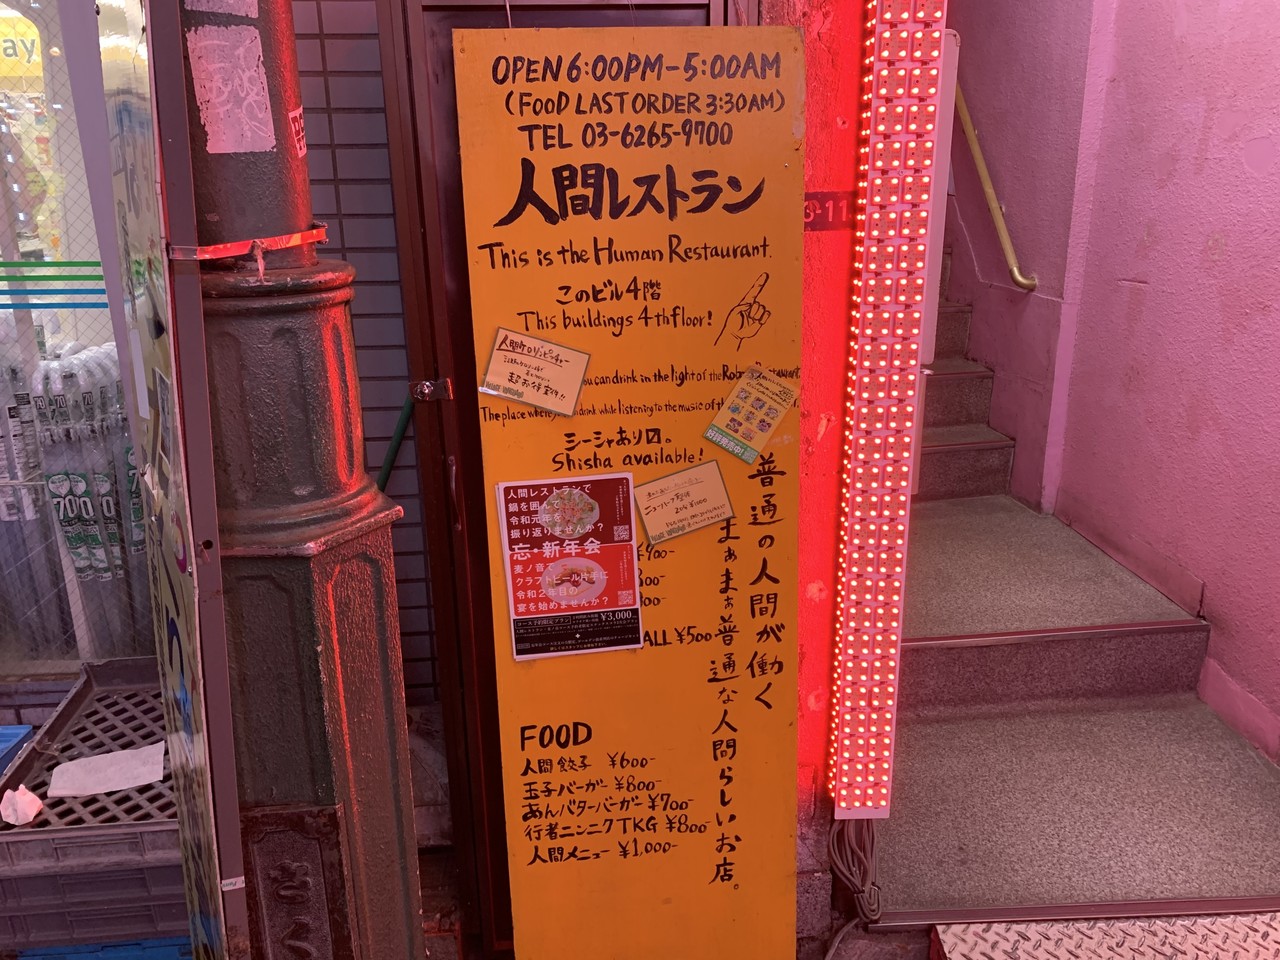 OPEN 6:00PM-5:00AM
(FOOD LAST ORDER 3:30AM)
TEL 03-6265-9700
人間レストラン
This is the Human Restaurant.
このビル4階
This buildings 4th floor!
you can drink in the light of the
The place where
drink while listening to the music of
シーシャあり〼。
Shisha available!
超お得
好評発売中!
人間レストランで
鍋を囲んで
令和元年を
振り返りませんか?
忘・新年会
麦ノ音で
クラフトビール片手に
令和2年目の
宴を始めませんか?
¥3,000
ALL ¥500
普通の人間が働く
まぁまぁ普通な人間らしいお店。
FOOD
人間餃子 ¥600-
玉子バーガー ¥800-
あんバターバーガー ¥700-
行者ニンニクTKG ¥800-
人間メニュー ¥1,000-
3-11
ay
70
700
さく